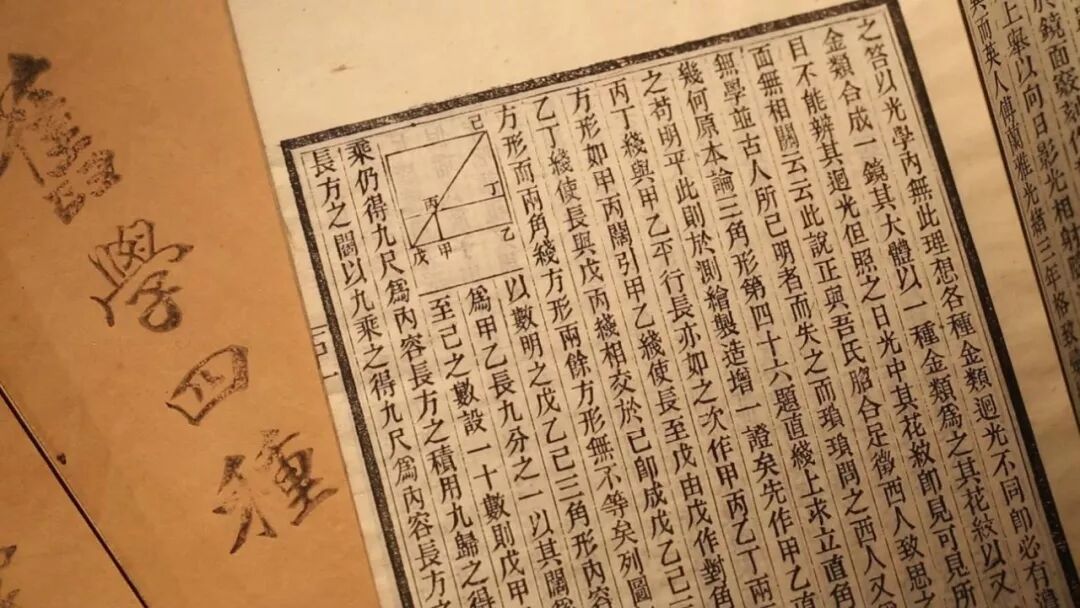 於鏡面
上舉以向日影光相射
而英人傅蘭雅光緒三年格致
之答以光學內無此理想各種金類迴光不同卽必有
金類合成一鏡其大體以一種金類爲之其花紋以又
目不能辨其迴光但照之日光中其花紋卽見可見所
面無相關云云此說正與吾氏脗合足徵西人致思之
無學並古人所已明者而失之而瑣瑣問之西人又
幾何原本論三角形第四十六題直綫上求立直角
之苟明平此則於測繪製造增一證矣先作甲乙直
丙丁綫與甲乙平行長亦如之次作甲丙乙丁兩
方形如甲丙闊引甲乙綫使長至戊由戊作對角
乙丁綫使長與戊丙綫相交於己卽成戊乙己三
方形而兩角綫方形兩餘方形無不等矣列圖
己
丁
丙
乙
甲
戊
以數明之戊乙己三角形內容
爲甲乙長九分之一以其闊爲
至己之數設一十數則戊甲
乘仍得九尺爲內容長方之積用九歸之得
長方之闊以九乘之得九尺爲內容長方之
舊學四種